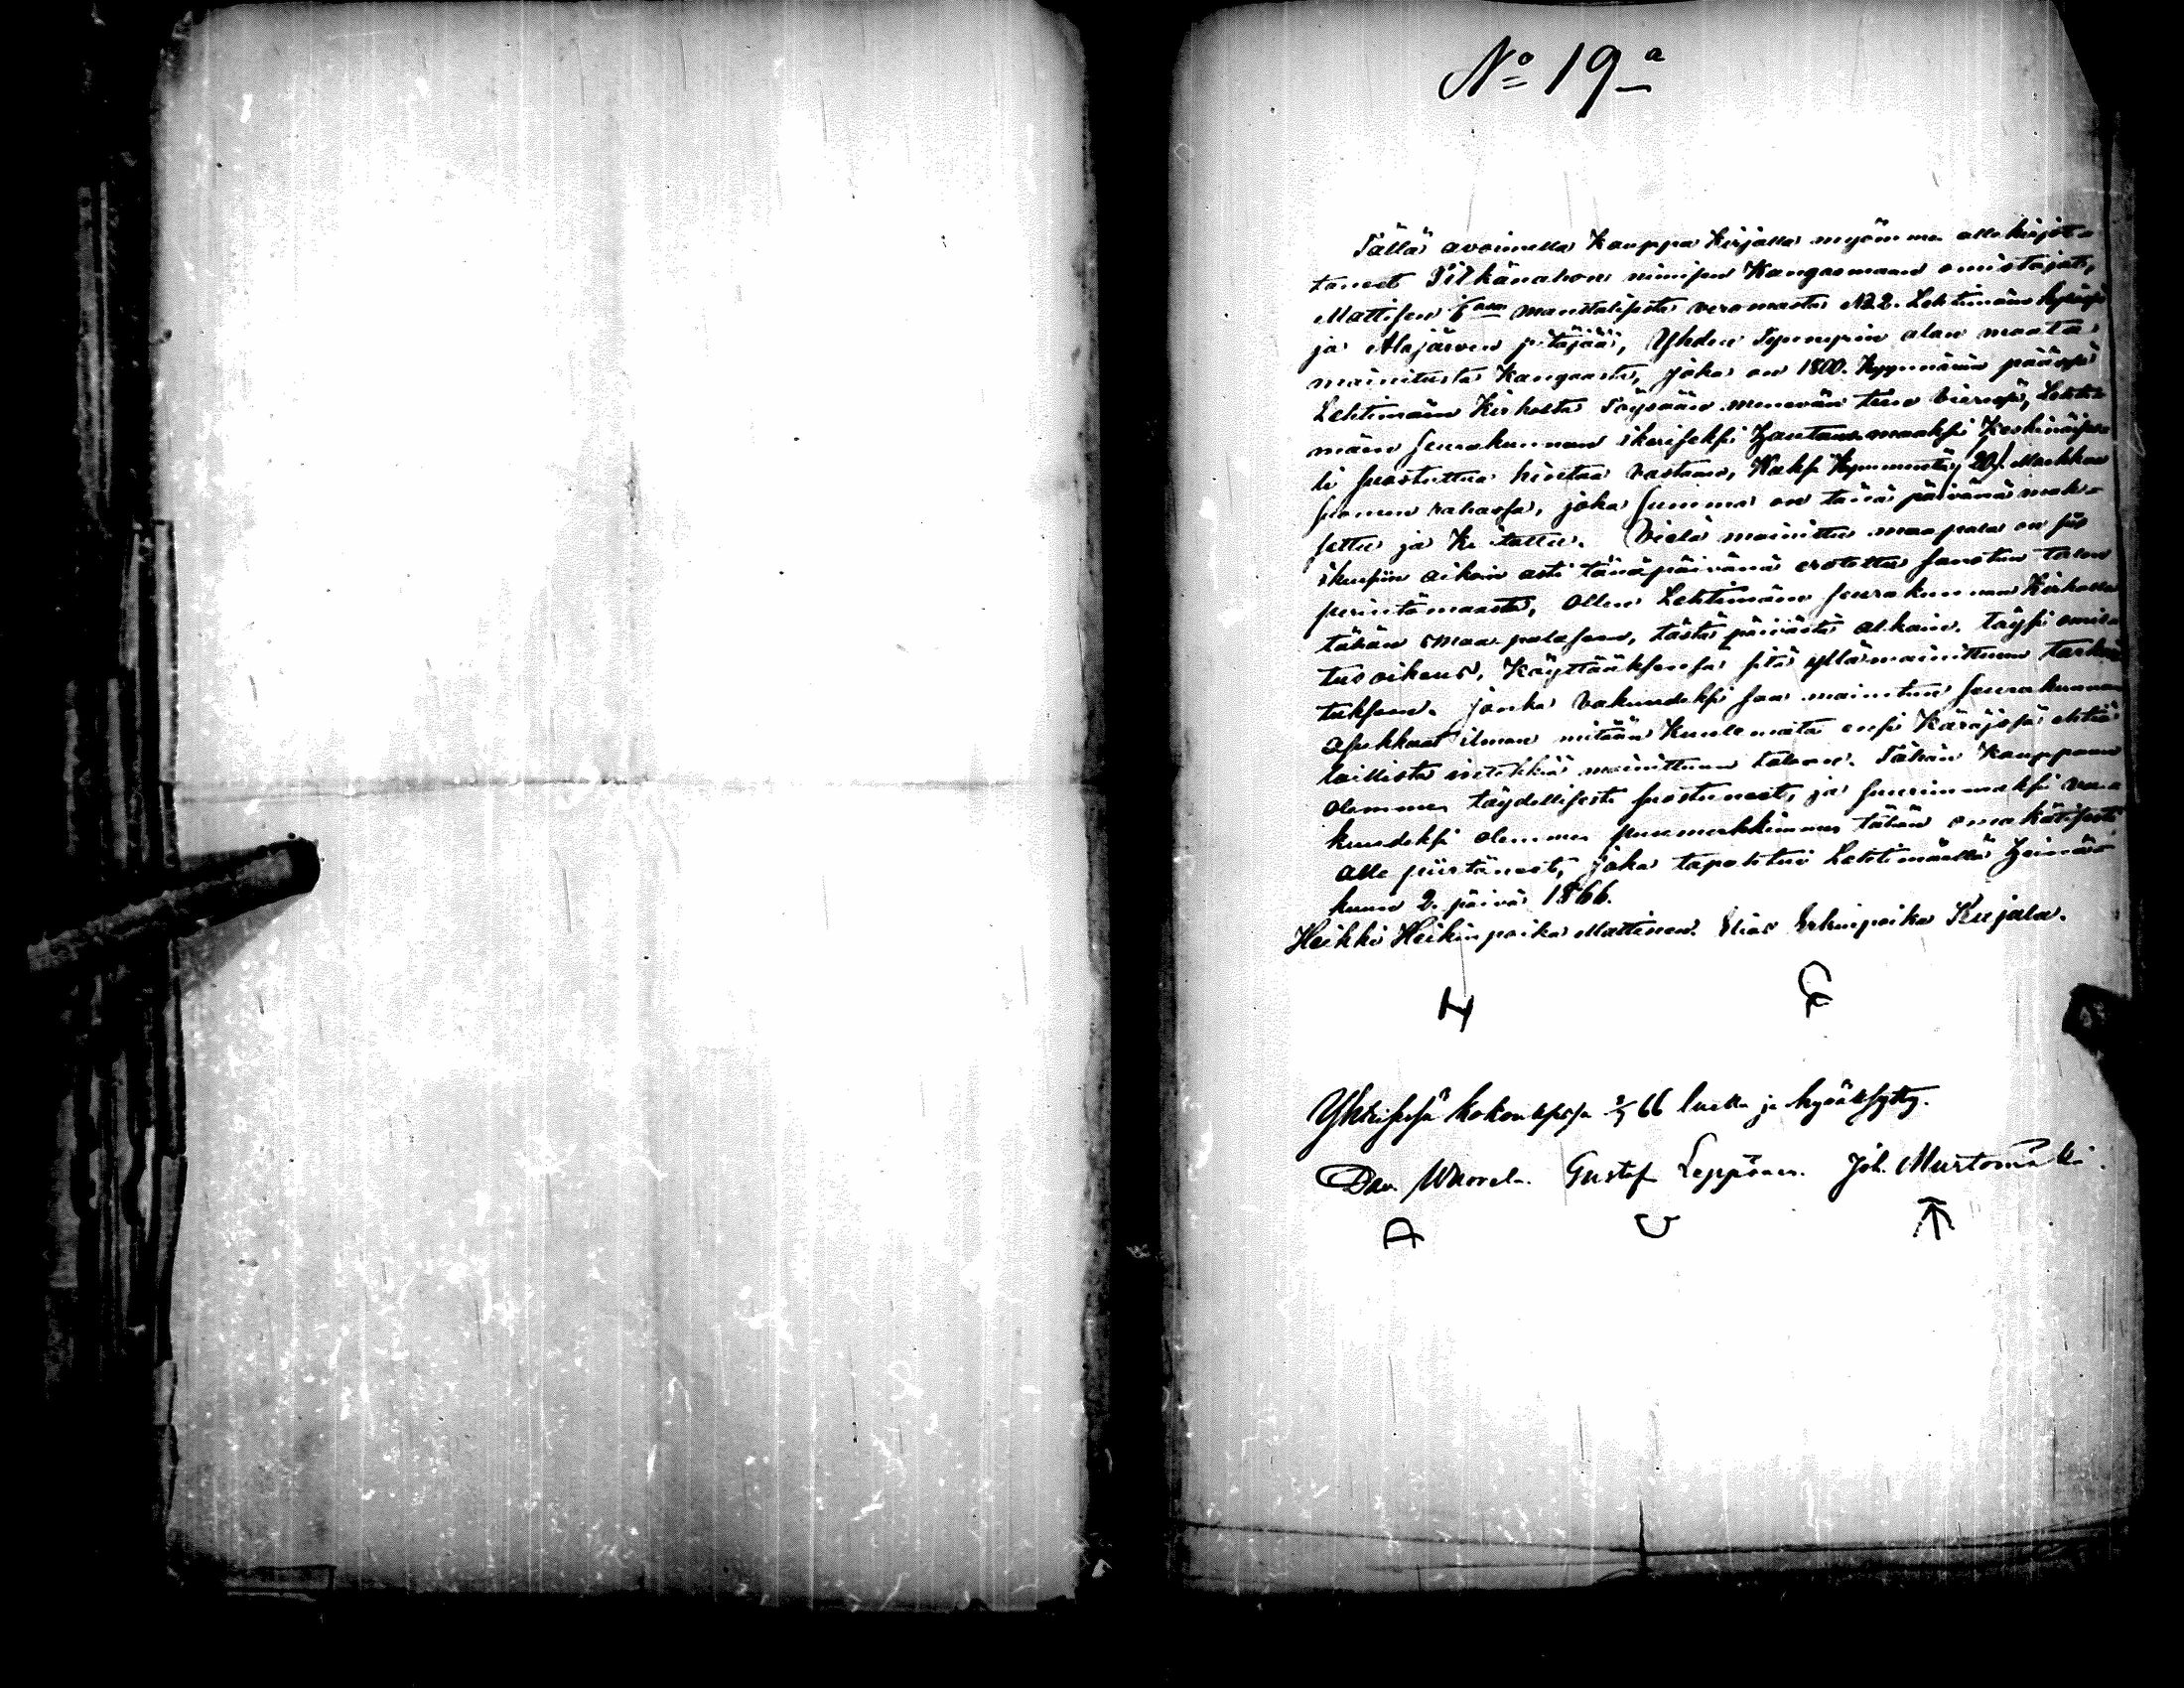 No 19 a
Tällä avoimella Kauppa Kirjalla myömme alle kirjot-
taneet Pitkänahon nimisen Kangasmaan omistajat,
Mattisen 1/6 manttalista veromaata N:2. Lehtimäen kylässä
ja Alajärven pitäjää, Yhden Tynnyrin alan maata
mainitusta Kangaasta, joka on 1800. Kyynärän päässä
Lehtimäen Kirkolta Töysään menevän tien vieressä, Lehti-
mäen seurakunnan ikuiseksi Hautausmaaksi Keskinäises-
ti suostuttua hintaa vastaan, Kaksi Kymmentä/20/. Markkaa
suomen rahassa, joka summa on tänä päivänä mak-
settu ja Kvitattu. Vielä mainittu maapala on siis
ikuisiin aikoin asti tänäpäivänä erotettu sanotun talon
perintömaasta, Ollen Lehtimäen seurakunnan Kirkolla
tähän maa palaseen, tästä päivästä alkain. täysi omis-
tus oikeus, Käyttääksensä sitä yllämainittuun tarkoi-
tukseen. jonka vakuudeksi saa mainitun seurakunnan
asukkaat ilman mitään Kuulematta ensi Käräjissä ottaa
laillista kiinekkiä mainittuun taloon. Tähän Kauppaan
olemme täydellisesti suostuneet, ja suurimmaksi va-
kuudeksi olemme puumerkkimme tähän omakätisesti
alle piirtäneet, joka tapahtui Lehtimäellä Heinä-
kuun 2. päivä 1866.
Heikki Heikinpoika Mattinen. Elias Erkinpoika Kujala.
H E
Yhteisessä kokouksessa 2/7 66 luettu ja hyväksytty.
Dav. Wuorela. Gustaf Leppänen. Joh. Murtomäki.